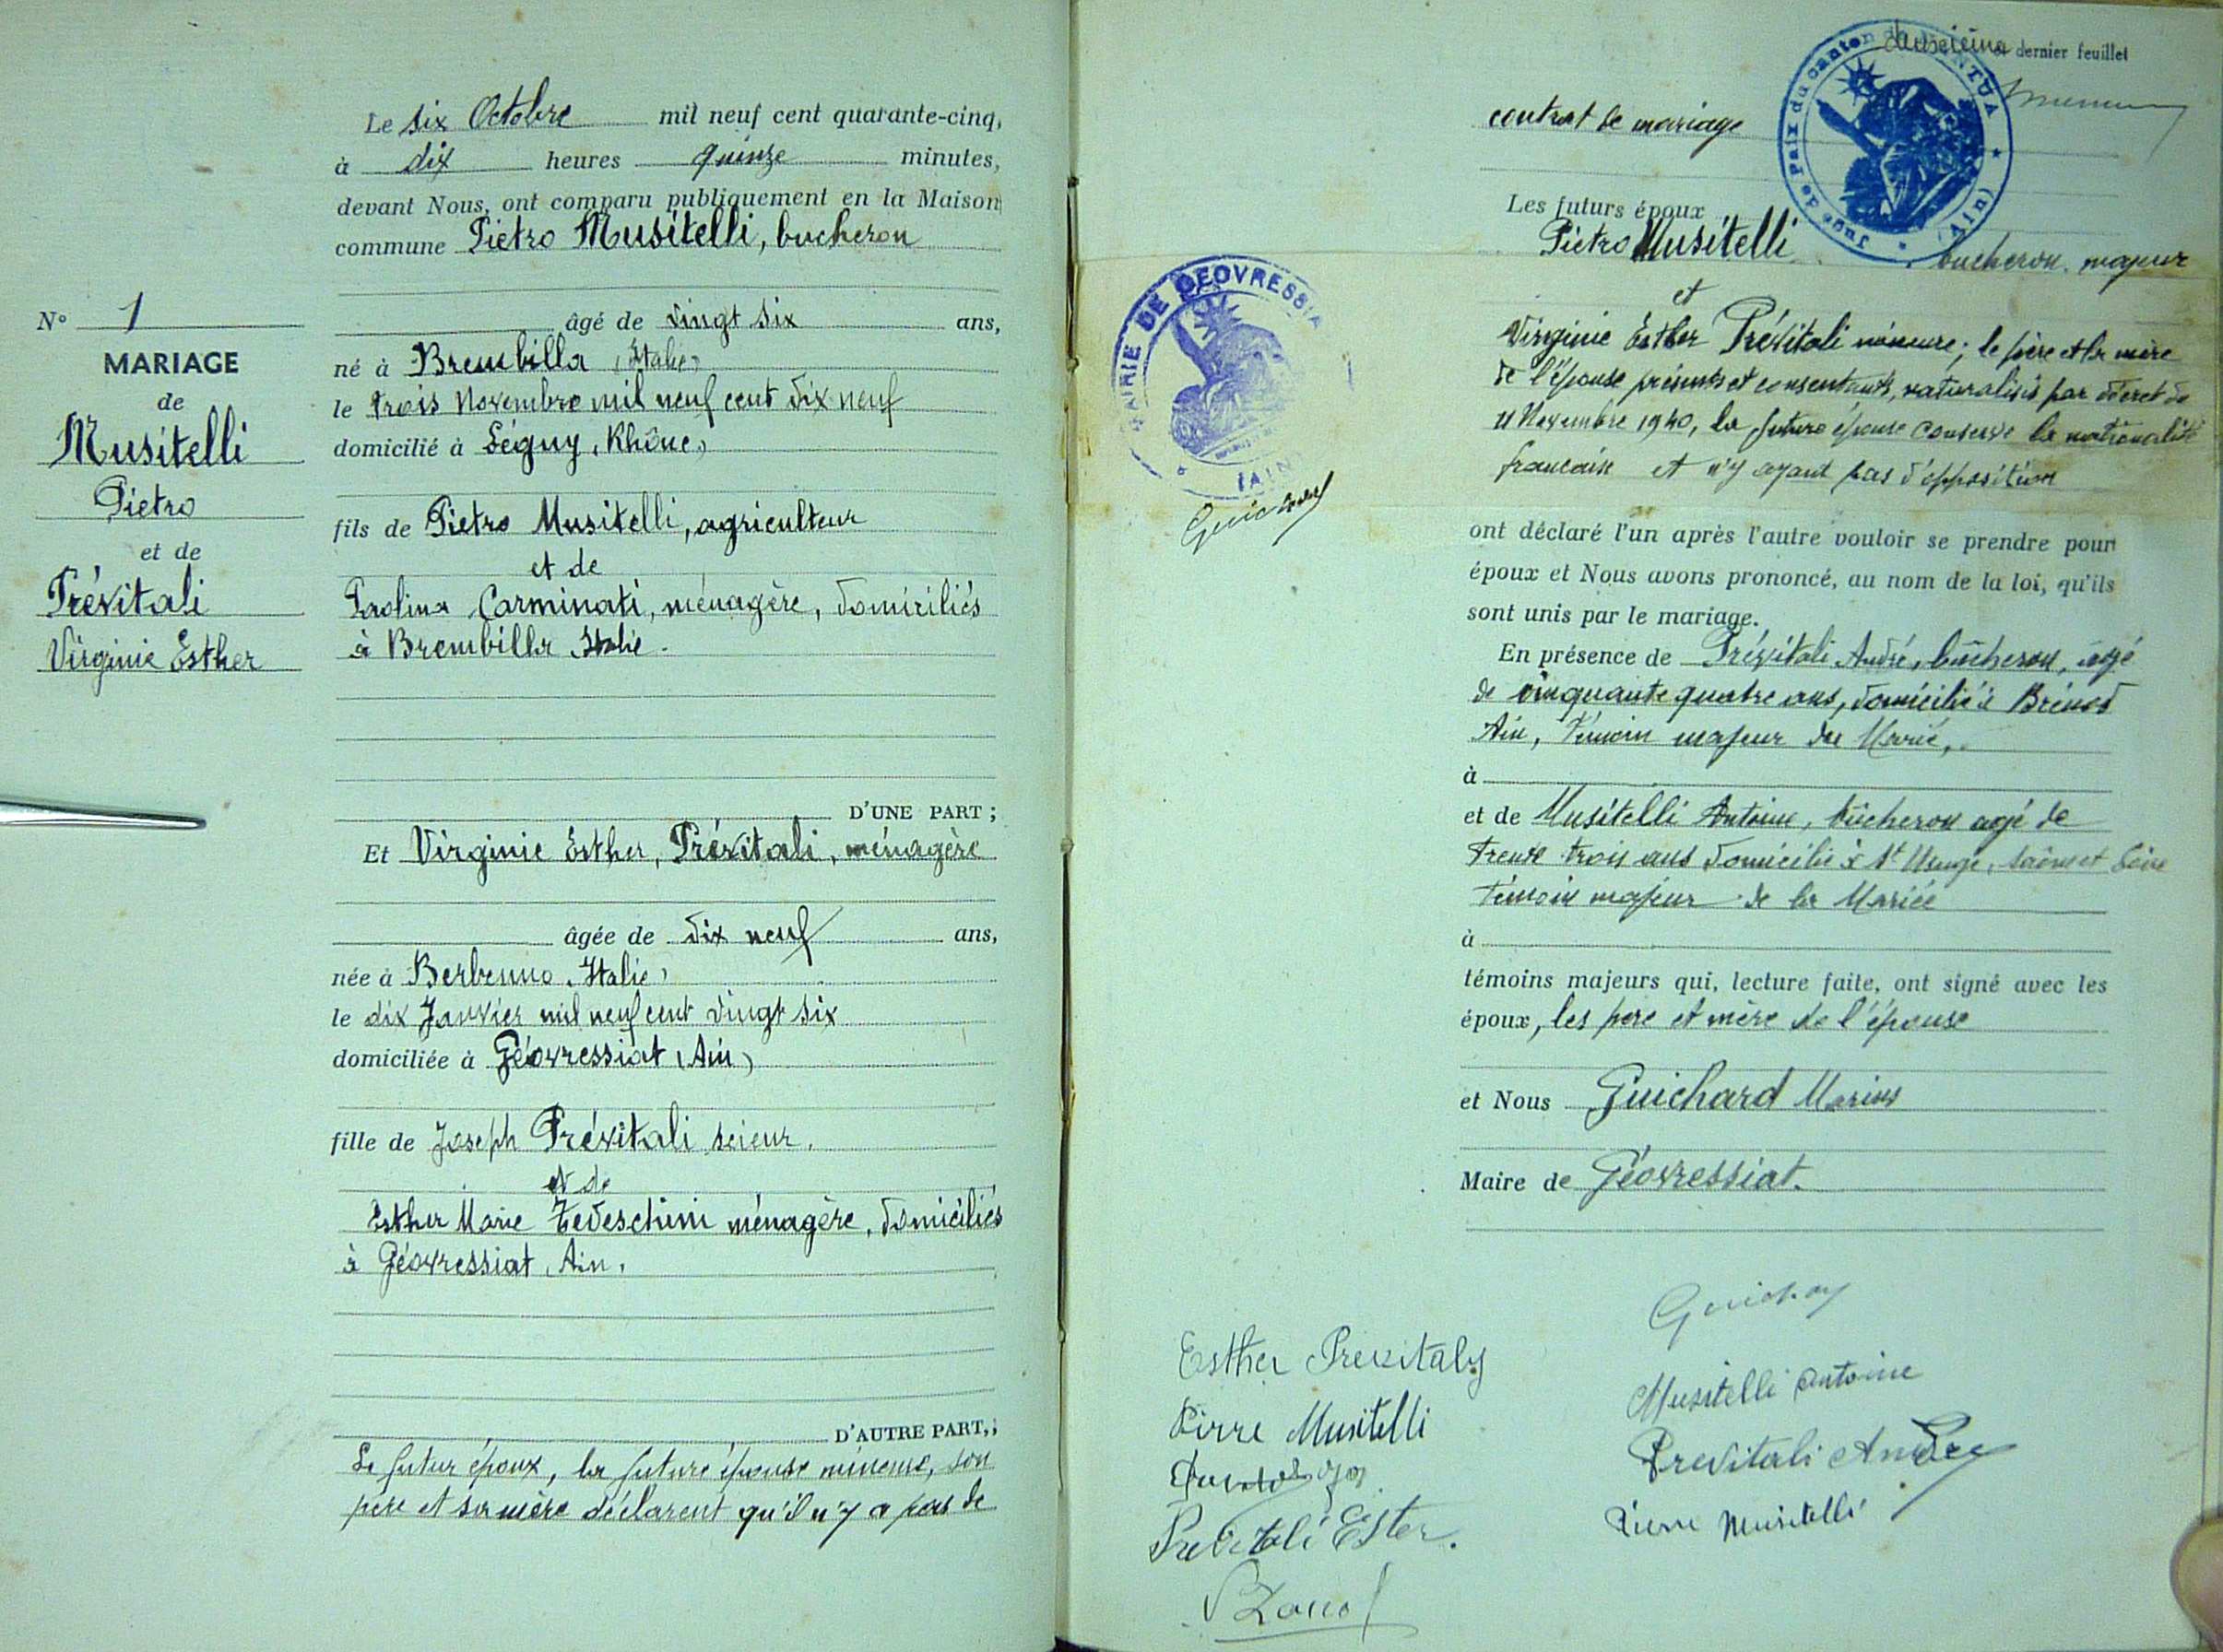 Le six Octobre mil neuf cent quarante-cinq,
à dix heures quinze minutes,
devant Nous, ont comparu publiquement en la Maison
commune Pietro Musitelli, bucheron
âgé de vingt six ans,
né à Brembilla (Italie)
le trois Novembre mil neuf cent dix neuf
domicilié à Légny (Rhône)
fils de Pietro Musitelli, agriculteur
et de
Paolina Carminati, ménagère, domiciliés
à Brembilla Italie.
N° 1
MARIAGE
de
Musitelli
Pietro
et de
Prévitali
Virginie Esther
D'UNE PART ;
Et Virginie Esther, Prévitali, ménagère
âgée de dix neuf ans,
née à Berbenno (Italie)
le dix Janvier mil neuf cent vingt six
domiciliée à Géovressiat (Ain)
fille de Joseph Prévitali scieur,
et de
Esther Marie Tedeschini ménagère, domiciliés
à Géovressiat (Ain.
D'AUTRE PART,;
Le futur époux, la future épouse mineure, son
père et sa mère déclarent qu'il n'y a pas de
deuxième et dernier feuillet
contrat de mariage
Juge de Paix du canton de NANTUA (Ain)
Les futurs époux
Pietro Musitelli bucheron, majeur
et
Virginie Esther Prévitali mineure; le père et la mère
de l'épouse présents et consentants, naturalisés par décret du
11 Novembre 1940, la future épouse conserve la nationalité
francaise et n'y ayant pas d'opposition
MAIRIE DE GEOVRESSIA
(AIN)
Guichard
ont déclaré l'un après l'autre vouloir se prendre pour
époux et Nous avons prononcé, au nom de la loi, qu'ils
sont unis par le mariage.
En présence de Prévitali André, bûcheron, agé
de cinquante quatre ans, domicilié à Brénod
Ain, Témoin majeur du Marié,
à
et de Musitelli Antoine, bûcheron agé de
Trente trois ans domicilié à St Usuge, Saône et Loire
Témoin majeur de la Mariée
à
témoins majeurs qui, lecture faite, ont signé avec les
époux, les père et mère de l'épouse
et Nous Guichard Marius
Maire de Géovressiat.
Guichard
Esther Previtaly
Pirre Musitelli
Previtali Ester.
Musitelli Antoine
Previtali André
Pierre Musitelli